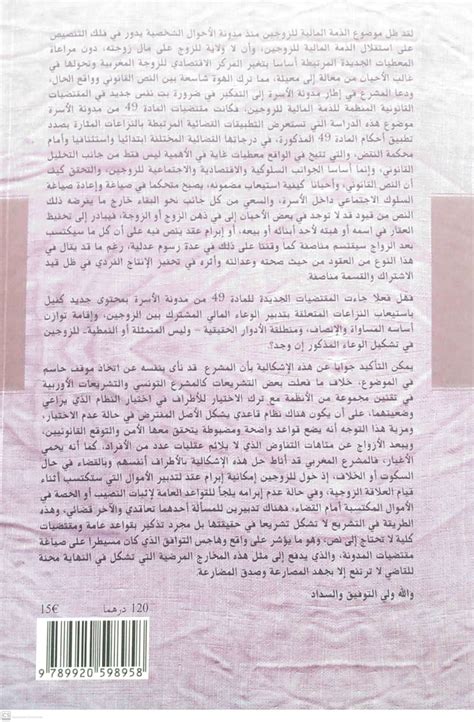 لقد ظل موضوع الذمة المالية للزوجين منذ مدونة الأحوال الشخصية يدور في فلك التنصيص
على استقلال الذمة المالية للزوجين، وأن لا ولاية للزوج على مال زوجته، دون مراعاة
المعطيات الجديدة المرتبطة أساسا بتغير المركز الاقتصادي للزوجة المغربية وتحولها في
غالب الأحيان من معالة إلى معيلة، مما ترك الهوة شاسعة بين النص القانوني وواقع الحال،
ودعا المشرع في إطار مدونة الأسرة إلى التفكير في ضرورة بث نفس جديد في المقتضيات
القانونية المنظمة للذمة المالية للزوجين. فكانت مقتضيات المادة 49 من مدونة الأسرة
موضوع هذه الدراسة التي تستعرض التطبيقات القضائية المرتبطة بالنزاعات المثارة بصدد
تطبيق أحكام المادة 49 المذكورة، في درجاتها القضائية المختلفة ابتدائيا واستئنافيا وأمام
محكمة النقض، والتي تتيح في الواقع معطيات غاية في الأهمية ليس فقط من جانب التحليل
القانوني، وإنما أساسا الجوانب السلوكية والاقتصادية والاجتماعية للزوجين، والتحقق كيف
أن النص القانوني، وأحيانا كيفية استيعاب مضمونه، يصبح متحكما في صياغة وإعادة صياغة
السلوك الاجتماعي داخل الأسرة، والسعي من كل جانب نحو البقاء خارج ما يفرضه ذلك
النص من قيود قد لا توجد في بعض الأحيان إلى في ذهن الزوج أو الزوجة، فيبادر إلى تحفيظ
العقار في اسمه أو هبته لأحد أبنائه أو بيعه، أو إبرام عقد تنص فيه على أن كل ما سيكتسب
بعد الزواج سيقتسم مناصفة كما وقفنا على ذلك في عدة رسوم عدلية، رغم ما قد يقال في
هذا النوع من العقود من حيث صحته وعدالته وأثره في تحفيز الإنتاج الفردي في ظل قيد
الاشتراك والقسمة مناصفة.
فهل فعلا جاءت المقتضيات الجديدة للمادة 49 من مدونة الأسرة بمحتوى جديد كفيل
باستيعاب النزاعات المتعلقة بتدبير الوعاء المالي المشترك بين الزوجين، وإقامة توازن
أساسه المساواة والإنصاف، ومنطلقه الأدوار الحقيقية – وليس المتمثلة أو النمطية، للزوجين
في تشكيل الوعاء المذكور إن وجد؟
يمكن التأكيد جوابا عن هذه الإشكالية بأن المشرع قد نأى بنفسه عن اتخاذ موقف حاسم
في الموضوع، خلاف ما فعلت بعض التشريعات كالمشرع التونسي والتشريعات الأوربية
في تقنين مجموعة من الأنظمة مع ترك الاختيار للأطراف في اختيار النظام الذي يراعي
وضعيتهما، على أن يكون هناك نظام قاعدي يشكل الأصل المفترض في حالة عدم الاختيار،
ومزية هذا التوجه أنه يضع قواعد واضحة ومضبوطة يتحقق معها الأمن والتوقع القانونيين،
ويبعد الأزواج عن متاهات التفاوض الذي لا يلائم عقليات عدد من الأفراد، كما أنه يحمي
الأغيار، فالمشرع المغربي قد أناط حل هذه الإشكالية بالأطراف أنفسهم وبالقضاء في حال
السكوت أو الخلاف، إذ خول للزوجين إمكانية إبرام عقد لتدبير الأموال التي ستكتسب أثناء
قيام العلاقة الزوجية، وفي حالة عدم إبرامه يلجأ للقواعد العامة لإثبات النصيب أو الحصة في
الأموال المكتسبة أمام القضاء، فهناك تدبيرين للمسألة أحدهما تعاقدي والآخر قضائي، وهذه
الطريقة في التشريع لا تشكل تشريعا في حقيقتها بل مجرد تذكير بقواعد عامة ومقتضيات
كلية لا تحتاج إلى نص، وهو ما يؤشر على واقع وهاجس التوافق الذي كان مسيطرا على صياغة
مقتضيات المدونة، والذي يدفع إلى مثل هذه المخارج المرضية التي تشكل في النهاية محنة
للقاضي لا ترتفع إلا بجهد المصارعة وصدق المضارعة.
والله ولي التوفيق والسداد
120 درهما 15€
9 789920 598958